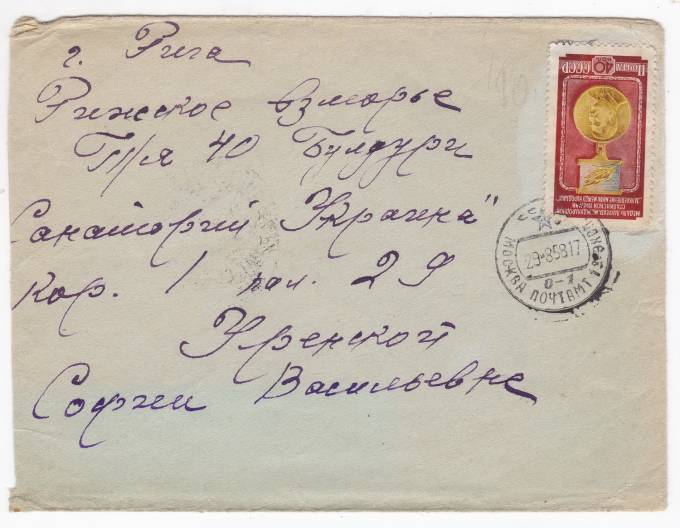 г. Рига
Рижское взморье
П/Я 40 Булдури
Санаторий Украина"
Кор. 1 пал. 29
Уренской
Софии Васильевне
ПОЧТА СССР
40
МОСКВА ПОЧТАМТ
29-8 58 17
0-1